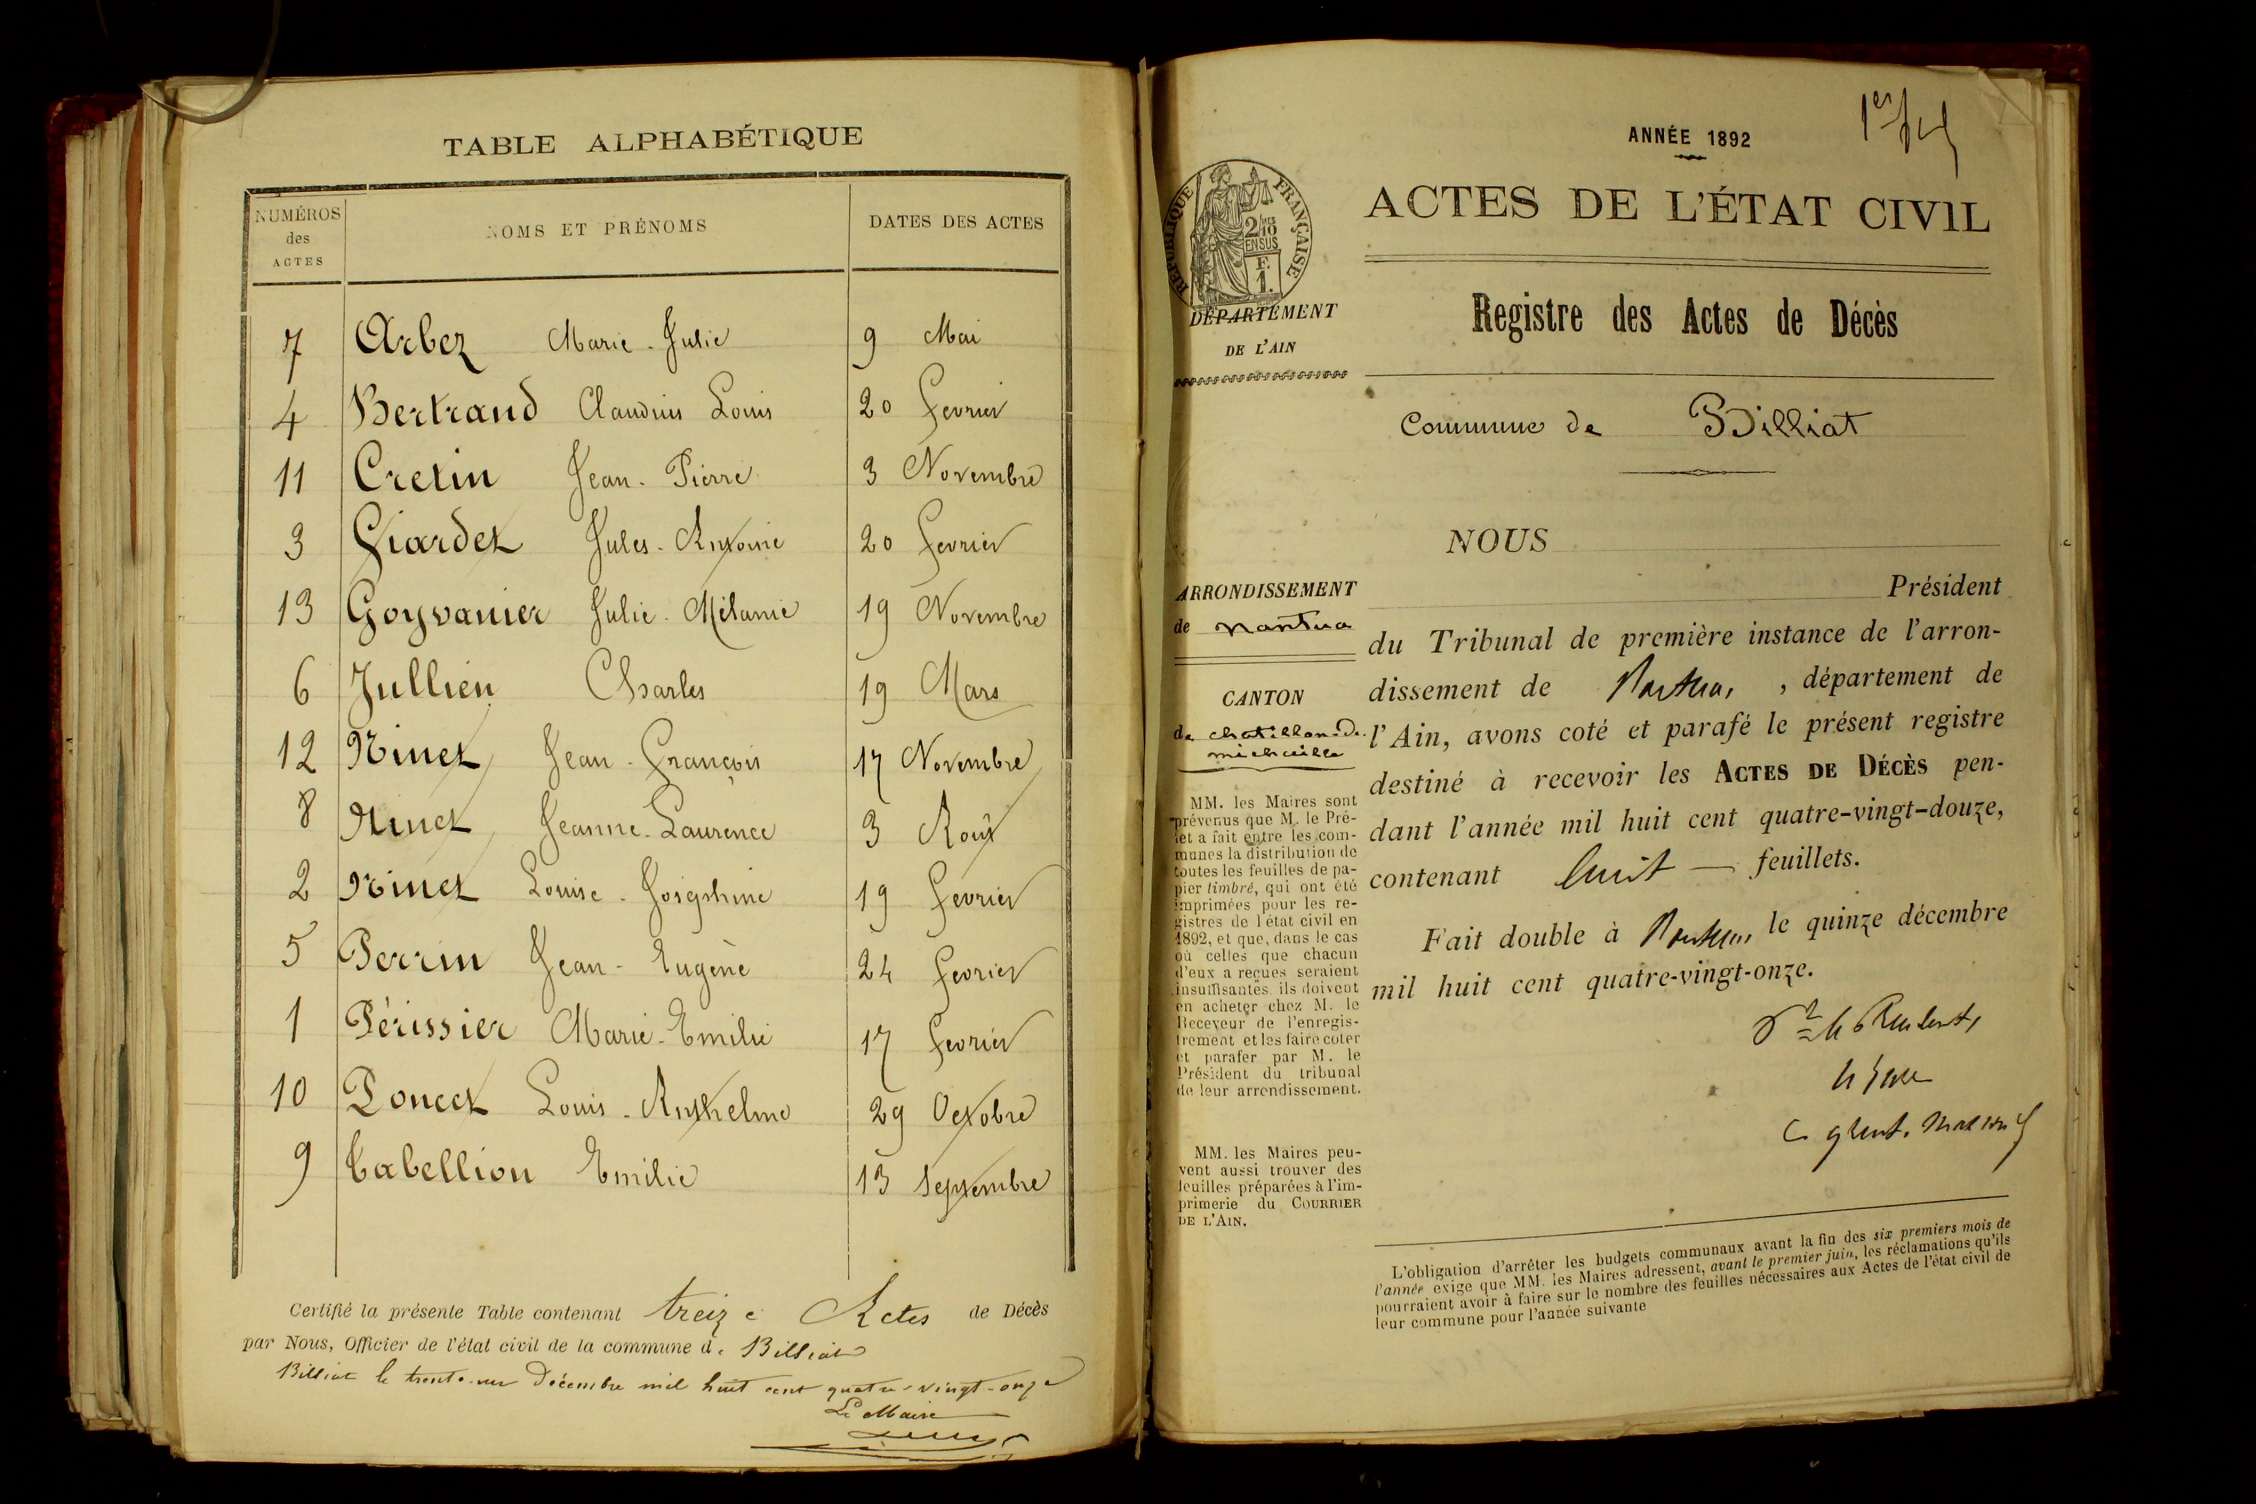 TABLE ALPHABÉTIQUE
NUMÉROS des ACTES
NOMS ET PRÉNOMS
DATES DES ACTES
7 Arbez Marie-Julie 9 Mai
4 Bertrand Claudius Louis 20 fevrier
11 Cretin Jean-Pierre 3 Novembre
3 Giardet Jules-Antoine 20 fevrier
13 Goyvanier Julie-Mélanie 19 Novembre
6 Jullien Charles 19 Mars
12 Ninet Jean-François 17 Novembre
8 Ninet Jeanne-Laurence 3 Août
2 Ninet Louise-Josephine 19 fevrier
5 Perrin Jean-Eugène 24 fevrier
1 Périssier Marie-Emilie 17 fevrier
10 Poncet Louis-Anthelme 29 Octobre
9 Tabellion Emilie 13 Septembre
Certifié la présente Table contenant treize Actes de Décès
par Nous, Officier de l'état civil de la commune de Billiat
Billiat le trente-un Décembre mil huit cent quatre-vingt-onze
Le Maire
1er
ANNÉE 1892
ACTES DE L'ÉTAT CIVIL
RÉPUBLIQUE FRANÇAISE
2/10
EN SUS
F.
1.
DÉPARTEMENT
DE L'AIN
Registre des Actes de Décès
Commune de Billiat
ARRONDISSEMENT
de nantua
CANTON
de chatillon-de-
michaille
MM. les Maires sont
prévenus que M. le Pré-
fet a fait entre les com-
munes la distribution de
toutes les feuilles de pa-
pier timbré, qui ont été
imprimées pour les re-
gistres de l'état civil en
1892, et que, dans le cas
où celles que chacun
d'eux a reçues seraient
insuffisantes ils doivent
en acheter chez M. le
Receveur de l'enregis-
trement et les faire coter
et parafer par M. le
Président du tribunal
de leur arrondissement.
MM. les Maires peu-
vent aussi trouver des
feuilles préparées à l'im-
primerie du COURRIER
DE L'AIN.
NOUS
Président
du Tribunal de première instance de l'arron-
dissement de Nantua, département de
l'Ain, avons coté et parafé le présent registre
destiné à recevoir les ACTES DE DÉCÈS pen-
dant l'année mil huit cent quatre-vingt-douze,
contenant huit feuillets.
Fait double à Nantua, le quinze décembre
mil huit cent quatre-vingt-onze.
Pr le President,
le Juge
L'obligation d'arrêter les budgets communaux avant la fin des six premiers mois de
l'année exige que MM. les Maires adressent, avant le premier juin, les réclamations qu'ils
pourraient avoir à faire sur le nombre des feuilles nécessaires aux Actes de l'état civil de
leur commune pour l'année suivante